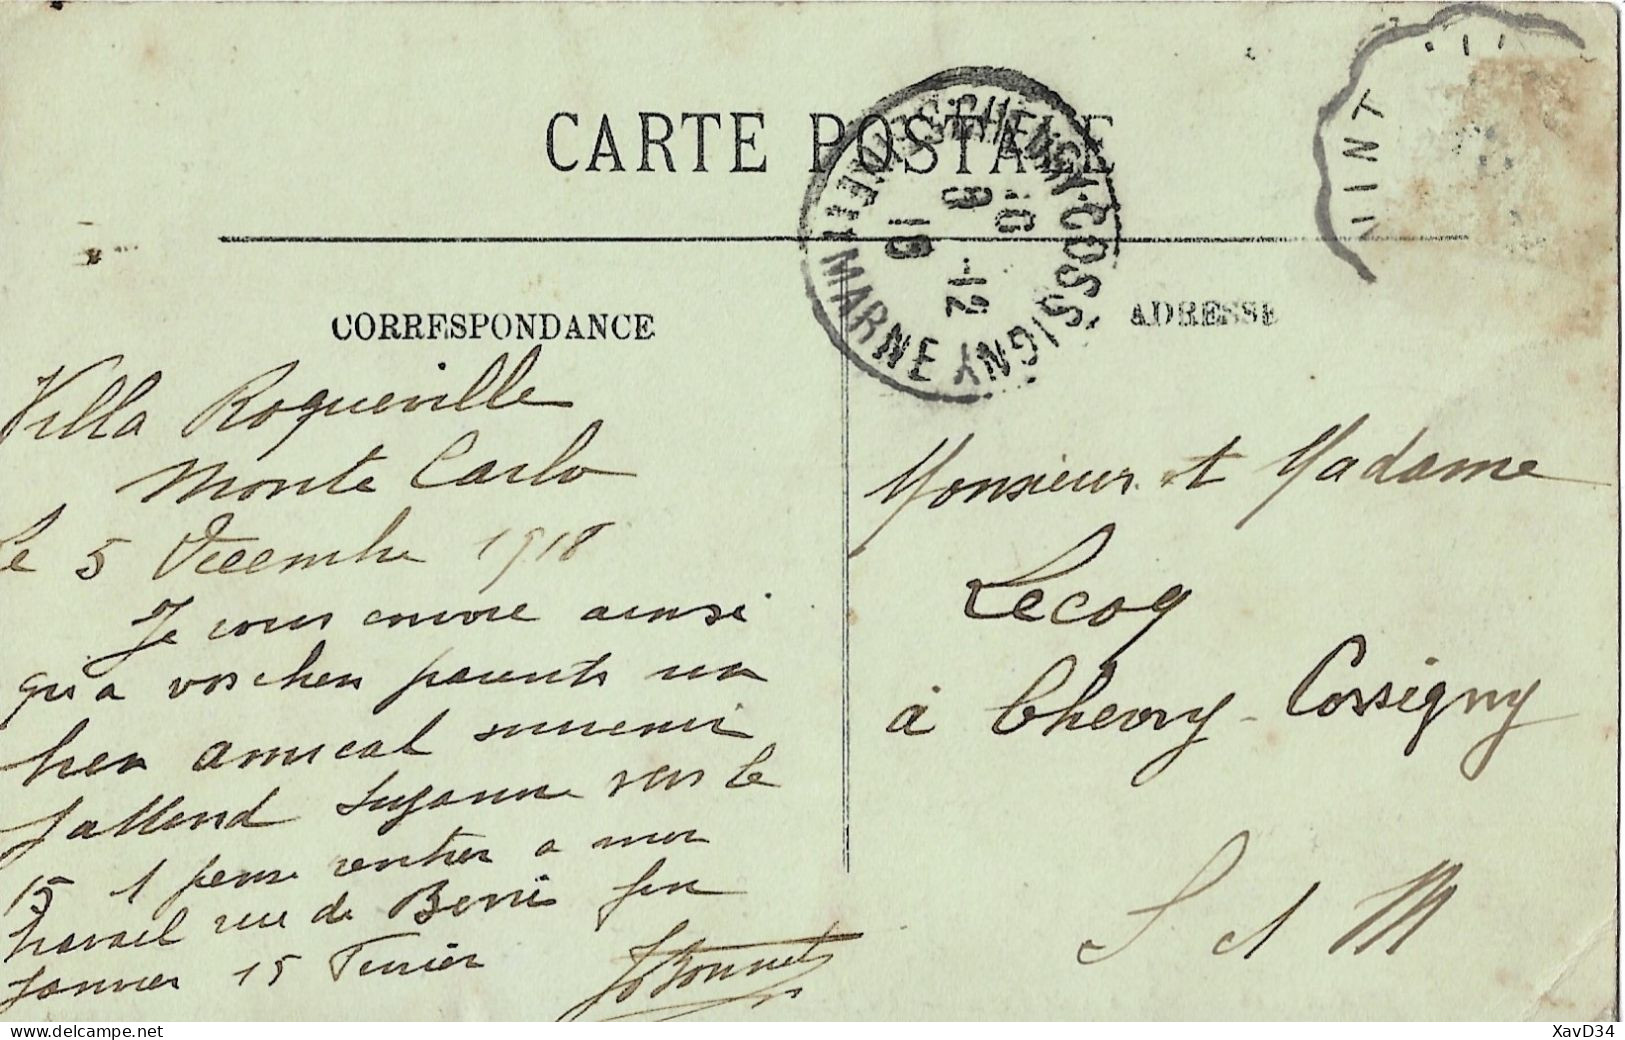 CARTE POSTALE
CHEVRY-COSSIGNY
10
9 -12
19
MARNE
CORRESPONDANCE
ADRESSE
Villa Roqueville
Monte Carlo
le 5 Decembre 1918
Je vous envoie ainsi
qu'a vos chers parents mon
bien amical souvenir
J'attend Suzanne vers le
15 pense rentrer a mon
travail rue de Berri fin
Janvier 15 Fevrier
Monsieur et Madame
Lecoq
à Chevry-Cossigny
S et M
delcampe.net
XavD34